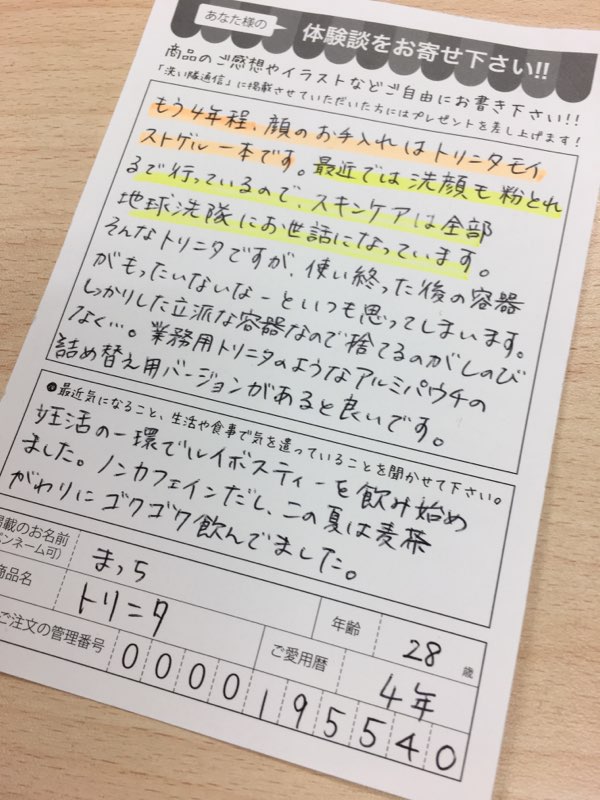 あなた様の 体験談をお寄せ下さい!!
商品のご感想やイラストなどご自由にお書き下さい!!
「洗い隊通信」に掲載させていただいた方にはプレゼントを差し上げます!
もう4年程、顔のお手入れはトリニタモイ
ストゲル一本です。最近では洗顔も粉とれ
るで行っているので、スキンケアは全部
地球洗い隊にお世話になっています。
そんなトリニタですが、使い終った後の容器
がもったいないなーといつも思ってしまいます。
しっかりした立派な容器なので捨てるのがしのび
なく…。業務用トリニタのようなアルミパウチの
詰め替え用バージョンがあると良いです。
最近気になること、生活や食事で気を遣っていることを聞かせて下さい。
妊活の一環でルイボスティーを飲み始め
ました。ノンカフェインだし、この夏は麦茶
がわりにゴクゴク飲んでました。
掲載のお名前
(ペンネーム可)
まっち
商品名
トリニタ
年齢
28
歳
ご注文の管理番号
ご愛用暦
4年
0000195540